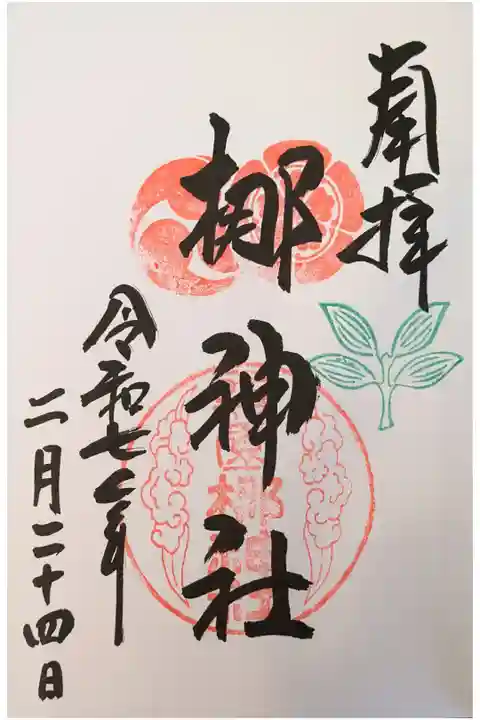 奉拝
梛神社
令和七年
二月二十四日